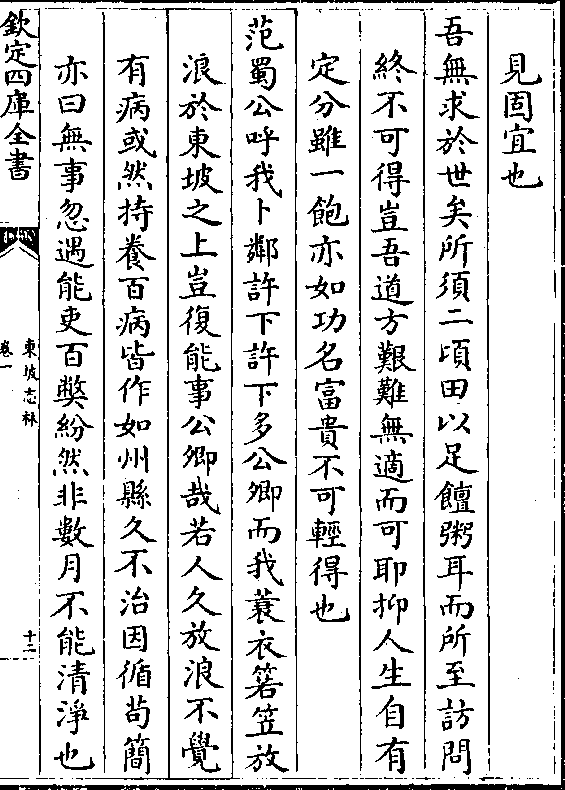 見固宜也
吾無求於世矣所須二頃田以足饘粥耳而所至訪問
終不可得豈吾道方艱難無適而可耶抑人生自有
定分雖一飽亦如功名富貴不可輕得也
范蜀公呼我卜鄰許下許下多公卿而我蓑衣箬笠放
浪於東坡之上豈復能事公卿哉若人久放浪不覺
有病或然持養百病皆作如州縣久不治因循苟簡
亦曰無事忽遇能吏百弊紛然非數月不能清淨也
欽定四庫全書
東坡志林
卷一
十二